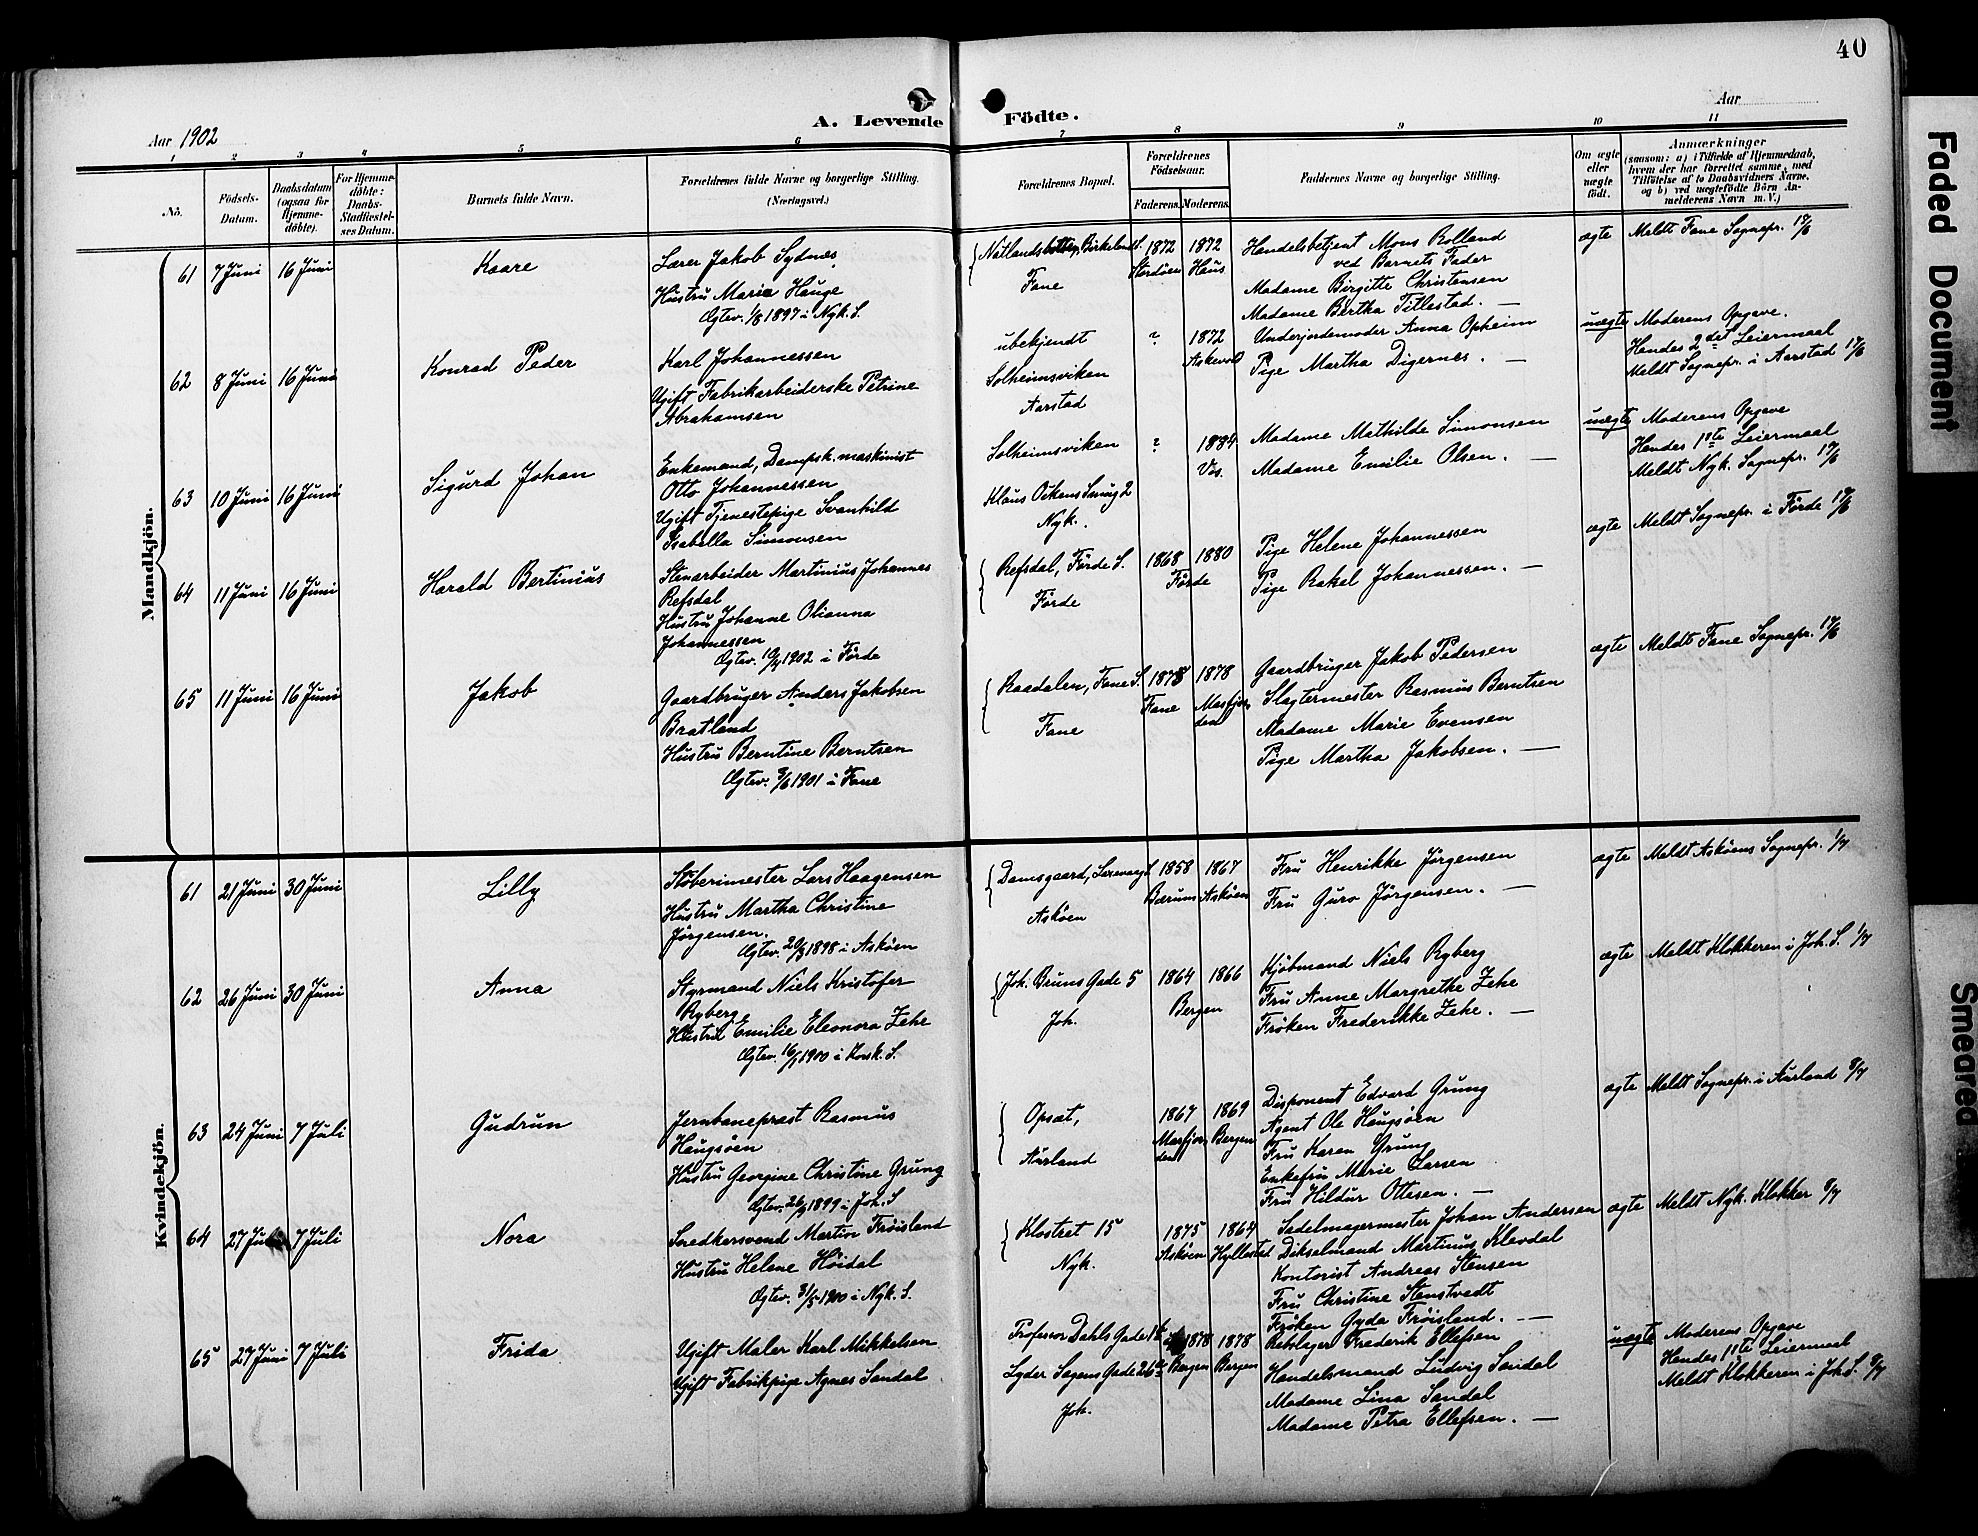 40
Aar 1902
A. Levende Födte.
Aar
1 2 3 4 5 6 7 8 9 10 11
No.
Födsels-Datum.
Daabsdatum (ogsaa for Hjemmedöbte).
For Hjemmedöbte: Daabs-Stadfæstelses Datum.
Barnets fulde Navn.
Forældrenes fulde Navne og borgerlige Stilling.
(Næringsvei.)
Forældrenes Bopæl.
Forældrenes Födselsaar.
Faderens. Moderens.
Faddernes Navne og borgerlige Stilling.
Om ægte eller uægte födt.
Anmærkninger
(saasom: a) i Tilfælde af Hjemmedaab, hvem der har forrettet samme, med Tilföielse af to Daabsvidners Navne, og b) ved uægtefödte Börn Anmelderens Navn m. V.)
Mandkjön.
61 7 Juni 16 Juni Kaare
Lærer Jakob Sydnes
Hustru Maria Hauge
Ægtev. 1/8 1897 i Nyk. S.
Birkelands S.
Fane
1872 Stordöen 1872 Haus
Handelsbetjent Mons Rolland
ved Barnets Fader
Madame Birgitte Christensen
Madame Bertha Tillestad. —
ægte Meldt Fane Sognepr. 17/6
62 8 Juni 16 Juni Konrad Peder
Karl Johannessen
Ugift Fabrikarbeiderske Petrine
Abrahamsen
ubekjendt
Solheimsviken
Aarstad
? 1872 Askevold
Underjordemoder Anna Opheim
Pige Martha Digernes. —
uægte Moderens Opgave.
Hendes 2det Leiermaal
Meldt Sognepr. i Aarstad 17/6
63 10 Juni 16 Juni Sigurd Johan
Enkemand, Dampsk. maskinist
Otto Johannessen
Ugift Tjenestepige Svanhild
Isabella Simonsen
Solheimsviken
Klaus Ockens Smug 2
Nyk.
? 1884 Vos.
Madame Mathilde Simonsen
Madame Emilie Olsen. —
uægte Moderens Opgave
Hendes 1ste Leiermaal
Meldt Nyk. Sognepr. 17/6
64 11 Juni 16 Juni Harald Bertinius
Stenarbeider Martinius Johannes
Refsdal
Hustru Johanne Olianna
Johannessen
Ægtev. 1902 i Förde
Refsdal, Förde S.
Förde
1868 1880
Förde
Pige Helene Johannessen
Pige Rakel Johannessen. —
ægte Meldt Sognepr. i Förde 17/6
65 11 Juni 16 Juni Jakob
Gaardbruger Anders Jakobsen
Bratland
Hustru Berntine Berntsen
Ægtev. 9/6 1901 i Fane
Raadalen, Fane S.
Fane
1878 Fane 1878 Masfjorden
Gaardbruger Jakob Pedersen
Slagtermester Rasmus Berntsen
Madame Marie Evensen
Pige Martha Jakobsen. —
ægte Meldt Fane Sognepr. 17/6
Kvindekjön.
61 21 Juni 30 Juni Lilly
Stöberimester Lars Haagensen
Hustru Martha Christine
Jörgensen.
Ægtev. 1898 i Asköen
Damsgaard, Laxevaag S.
Asköen
1858 Bærum 1867 Asköen
Fru Henrikke Jörgensen
Fru Guro Jörgensen. —
ægte Meldt Asköens Sognepr. 1/7
62 26 Juni 30 Juni Anna
Styrmand Niels Kristofer
Ryberg
Hustru Emilie Eleonora Zehe
Ægtev. 1900 i Korsk. S.
Joh. Bruns Gade 5
Joh.
1864 1866
Bergen
Kjöbmand Niels Ryberg
Fru Anne Margrethe Zehe
Fröken Frederikke Zehe. —
ægte Meldt Klokkeren i Joh. S. 1/7
63 24 Juni 7 Juli Gudrun
Jernbaneprest Rasmus
Haugsöen
Hustru Georgine Christine Grung
Ægtev. 1899 i Joh. S
Opsat,
Aurland
1867 Masfjorden 1869 Bergen
Disponent Edvard Grung
Agent Ole Haugsöen
Fru Karen Grung
Enkefru Marie Larsen
Fru Hildur Ottesen. —
ægte Meldt Sognepr. i Aurland 8/7
64 27 7 Juli Nora
Snedkersvend Martin Fröisland
Hustru Helene Höidal
Ægtev. 31/5 1900 i Nyk. S.
Klostret 15
Nyk.
1875 Asköen 1864 Hyllestad
Sadelmagermester Johan Andersen
Dikselmand Martinus Klævdal
Kontorist Andreas Stensen
Fru Christine Stenstvedt
Fröken Gyda Fröisland. —
ægte Meldt Nyk. Klokker 8/7
65 27 Juni 7 Juli Frida
Ugift Maler Karl Mikkelsen
Ugift Fabrikpige Agnes Sandal
Professor Dahls Gade
Lyder Sagens Gade 26
Joh.
1878 Bergen 1878 Bergen
Rebslager Frederik Ellefsen
Handelsmand Ludvig Sandal
Madame Lina Sandal
Madame Petra Ellefsen. —
uægte Moderens Opgave
Hendes 1ste Leiermaal
Meldt Klokkeren i Joh. S. 8/7
Faded Document
Smeared